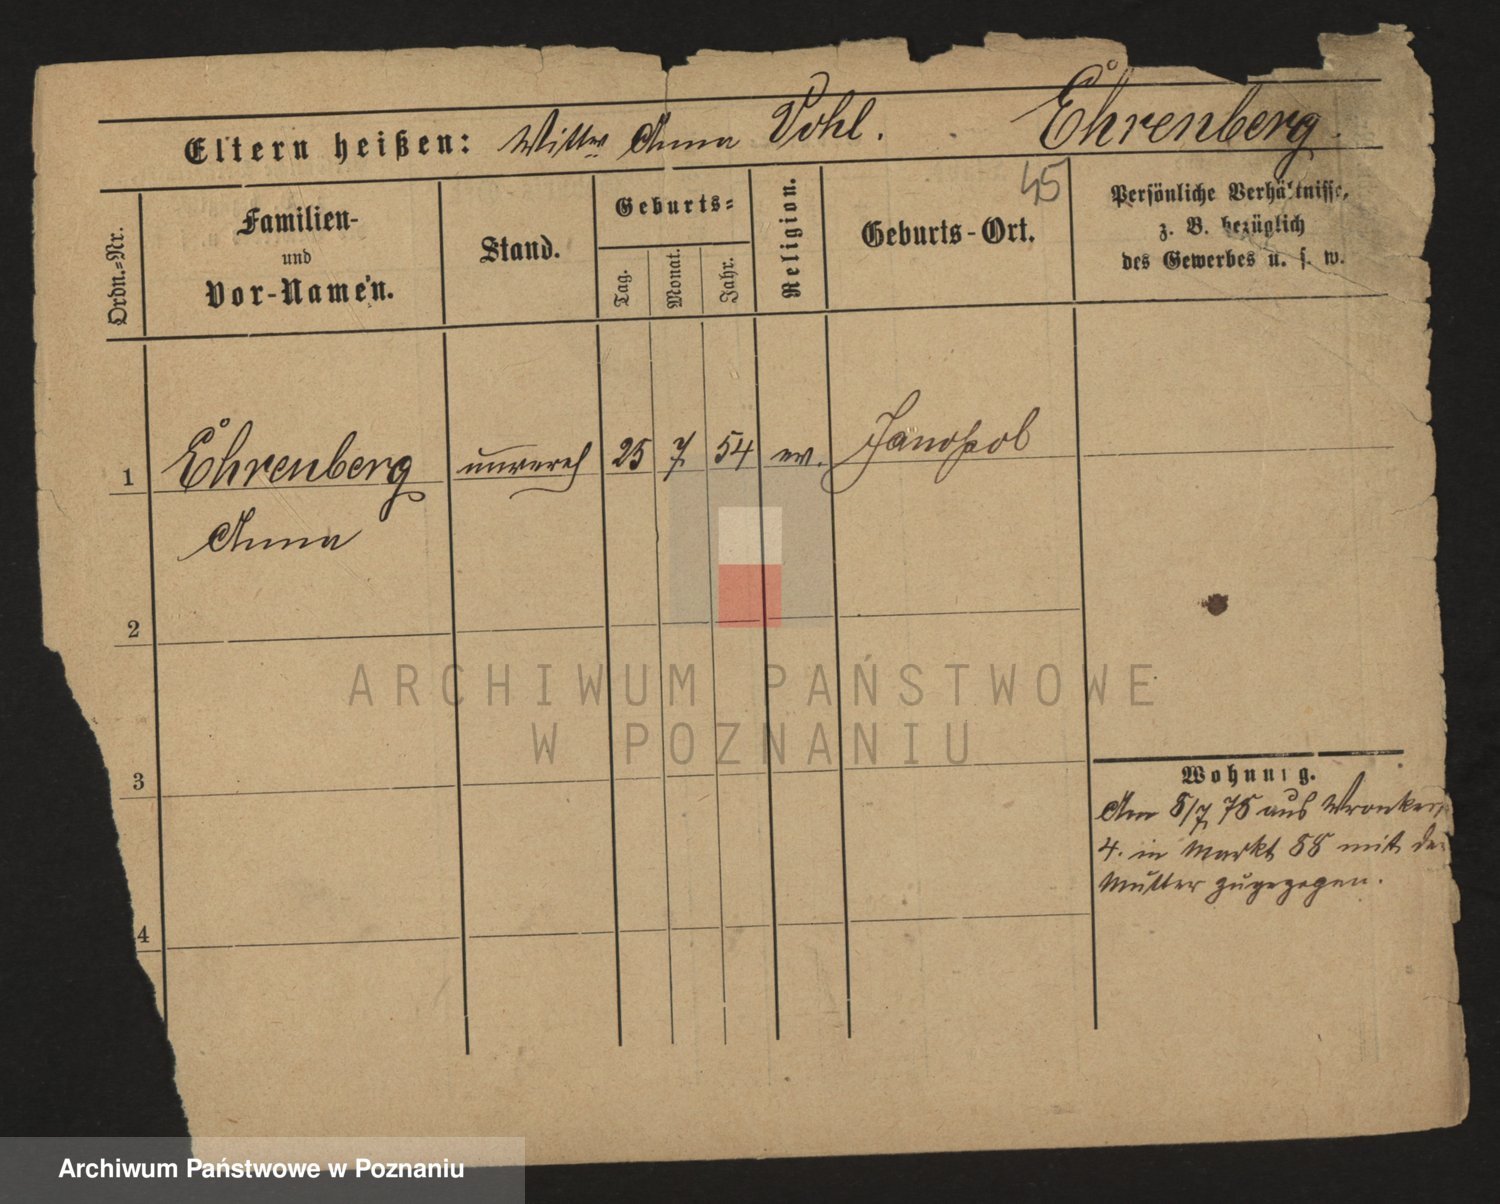 Eltern heißen: Wittwe Anna Pohl. Ehrenberg.
45
Ordn.-Nr.
Familien-
und
Vor-Namen.
Stand.
Geburts-
Tag.
Monat.
Jahr.
Religion.
Geburts-Ort.
Persönliche Verhältnisse,
z. B. bezüglich
des Gewerbes u. s. w.
1 Ehrenberg unvereh 25 7 54 ev. Janopol
Anna
2
3
4
Wohnung.
Am 5/7 75 aus Wronker
4. in Markt 58 mit der
Mutter zugezogen.
ARCHIWUM PAŃSTWOWE
W POZNANIU
Archiwum Państwowe w Poznaniu